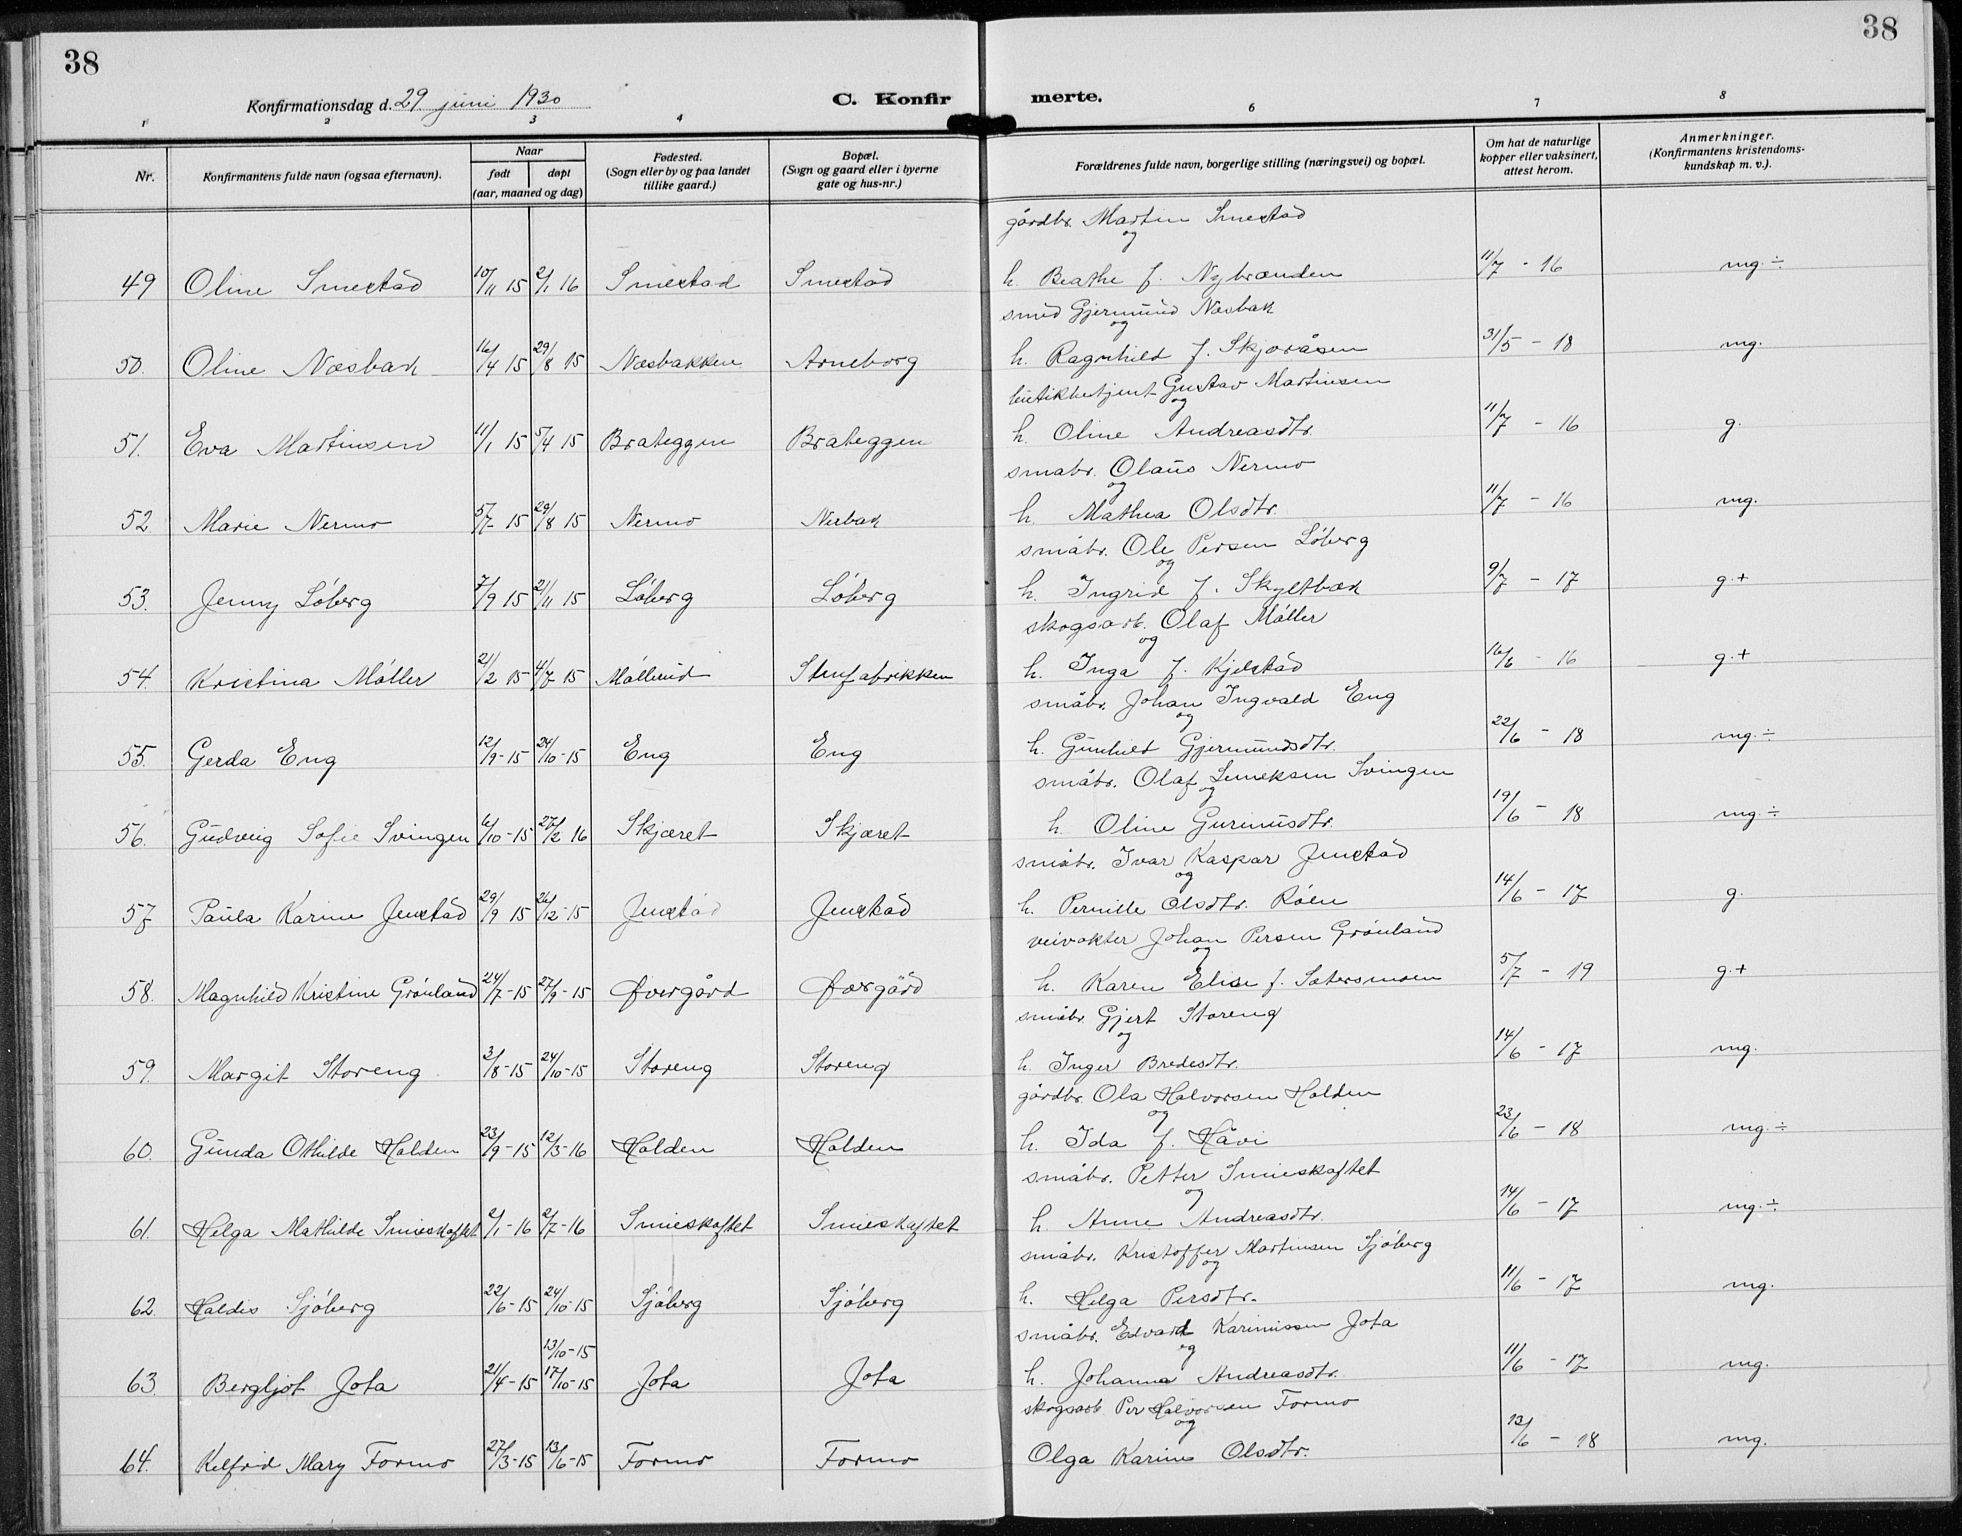 38
38
Konfirmationsdag d. 29 juni 1930
C. Konfir merte.
1 2 3 4 6 7 8
Nr. Konfirmantens fulde navn (ogsaa efternavn). Naar født døpt (aar, maaned og dag) Fødested. (Sogn eller by og paa landet tillike gaard.) Bopæl. (Sogn og gaard eller i byerne gate og hus-nr.) Forældrenes fulde navn, borgerlige stilling (næringsvei) og bopæl. Om hat de naturlige kopper eller vaksinert, attest herom. Anmerkninger. (Konfirmantens kristendoms- kundskap m. v.).
gårdbr. Martin Smestad
og
49 Oline Smestad 10/11 15 2/1 16 Smestad Smestad h. Beathe f. Nybrænden 11/7 - 16 mg ÷
smed Gjermund Næsbak
og
50. Oline Næsbak 16/4 15 29/8 15 Næsbakken Arneborg h. Ragnhild f. Skjøråsen 31/5 - 18 mg.
butikbetjent Gustav Martinsen
og
51. Eva Martinsen 11/1 15 5/4 15 Brateggen Brateggen h. Oline Andreasdtr. 11/7 - 16 g.
småbr. Olaus Nermo
og
52 Marie Nermo 5/7 15 29/8 15 Nermo Nerbak h. Mathea Olsdtr. 11/7 - 16 mg.
småbr. Ole Persen Løberg
og
53. Jenny Løberg 7/9 15 21/11 15 Løberg Løberg h. Ingrid f. Skyltbæk 9/7 - 17 g.+
skogsarb. Olaf Møller
og
54. Kristina Møller 21/2 15 4/7 15 Møllerud Stenfabrikken h. Inga f. Kjelstad 16/6 - 16 g.+
småbr. Johan Ingvald Eng
og
55. Gerda Eng 12/9-15 24/10-15 Eng Eng h. Gunhild Gjermundsdtr. 22/6 - 18 mg. ÷
småbr. Olaf Svingen
og
56. Gudveig Sofie Svingen 6/10-15 27/2 16 Skjæret Skjæret h. Oline Gurinusdtr. 19/6 - 18 mg ÷
småbr. Ivar Kaspar Jenstad
og
57 Paula Karine Jenstad 29/9 15 26/12-15 Jenstad Jenstad h. Pernille Olsdtr. Røen 14/6 - 17 g.
veivokter Johan Persen Grønland
og
58. Magnhild Kristine Grønland 24/7-15 27/9-15 Øvergård Øvergård h. Karen Elise f. Sætersmoen 5/7 - 19 g.+
småbr. Gjert Storeng
og
59. Margit Storeng 3/8-15 24/10-15 Storeng Storeng h. Inger Bredesdtr. 14/6 - 17 mg.
gårdbr. Ola Halvorsen Holden
og
60. Gunda Othilde Holden 23/9-15 12/3-16 Holden Holden h. Ida f. Håvi 23/6 - 18 mg. ÷
småbr. Petter Smieskaftet
og
61. Helga Mathilde Smieskaftet 2/1-16 2/7-16 Smieskaftet Smieskaftet h. Anne Andreasdtr. 14/6 - 17 mg. ÷
småbr. Kristoffer Martinsen Sjøberg
og
62. Haldis Sjøberg 22/6-15 24/10-15 Sjøberg Sjøberg h. Helga Persdtr. 11/6 - 17 mg.
småbr. Edvard Karinussen Jota
og
13/10-15
63. Bergljot Jota 21/4-15 17/10-15 Jota Jota h. Johanna Andreasdtr. 11/6 - 17 mg.
skogsarb. Per Halvorsen Formo
og
64. Kelfrid Mary Formo 27/3-15 13/6-15 Formo Formo Olga Karine Olsdtr. 13/6 - 18 mg.